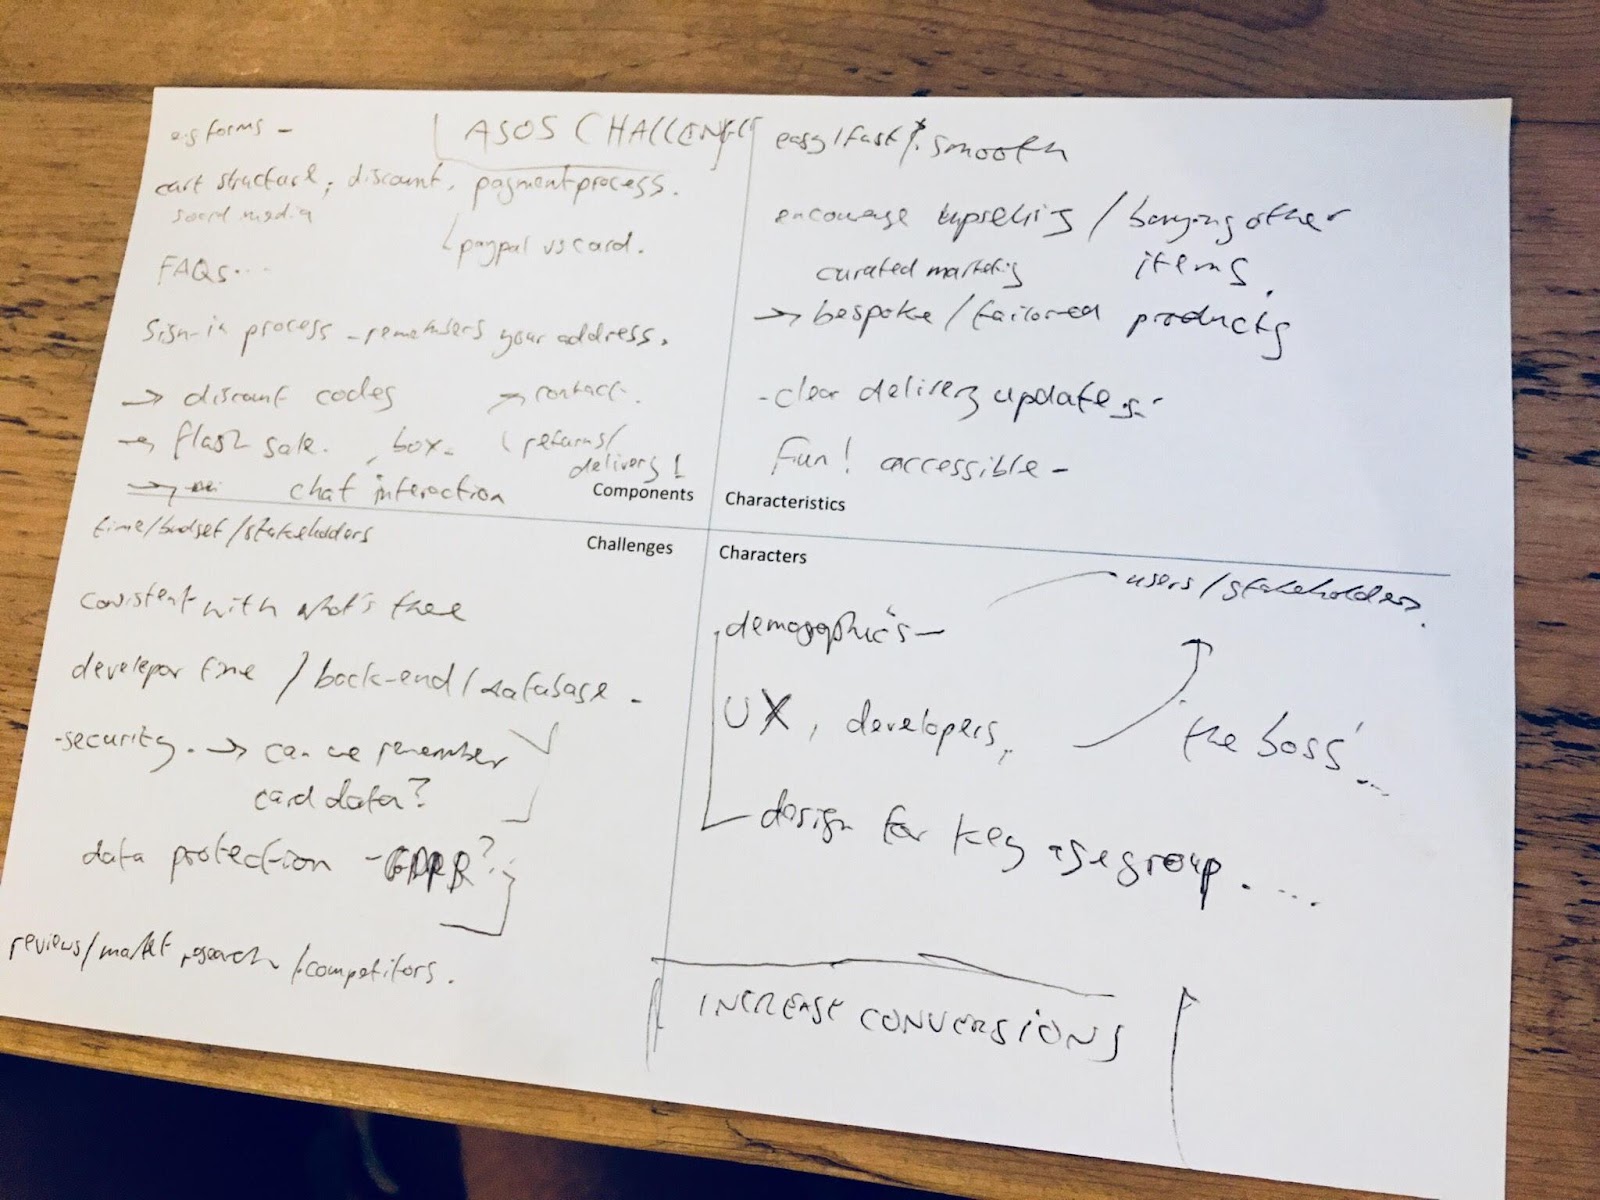 ASOS CHALLENGE
e.g forms -
cart structure, discount, payment process.
social media
paypal vs card.
FAQs...
sign-in process - remembers your address.
→ discount codes
→ contact.
→ flash sale. , box.
returns/
delivery!
→ chat interaction
Components
easy/fast/smooth
encourage upselling / buying other
items.
curated marketing
→ bespoke/tailored products
- clear delivery updates.
Fun! accessible -
Characteristics
time/budget/stakeholders
Challenges
consistent with what's there
developer time / back-end / database -
- security. → can we remember
card data?
data protection - GDPR?
reviews/market research/competitors.
Characters
users/stakeholders.
demographics -
UX, developers,
the boss...
design for key age group.....
INCREASE CONVERSIONS